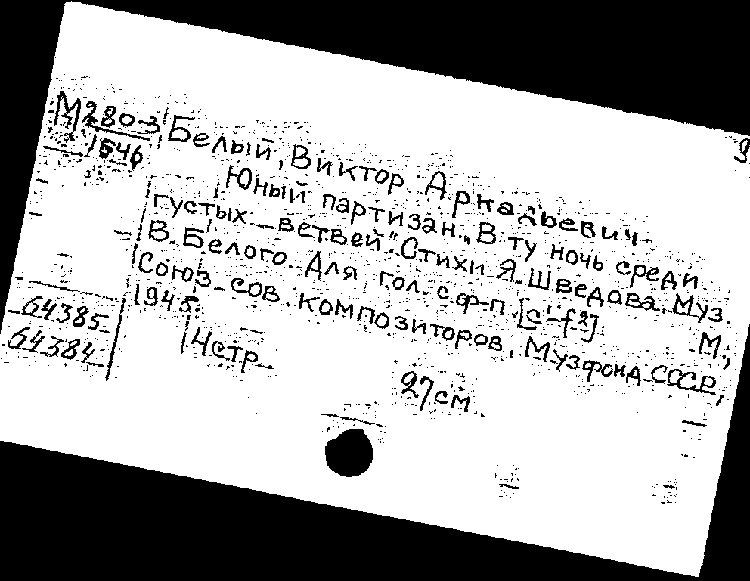 М280-3
1546
Белый, Виктор Аркадьевич
Юный партизан. „В ту ночь среди
густых ветвей". Стихи Я. Шведава. Муз.
В. Белого. Для гол. с ф-п. [c¹-f²] М.,
Союз сов. композиторов, Музфонд СССР,
1945.
4стр.
27см.
64385
64384
9